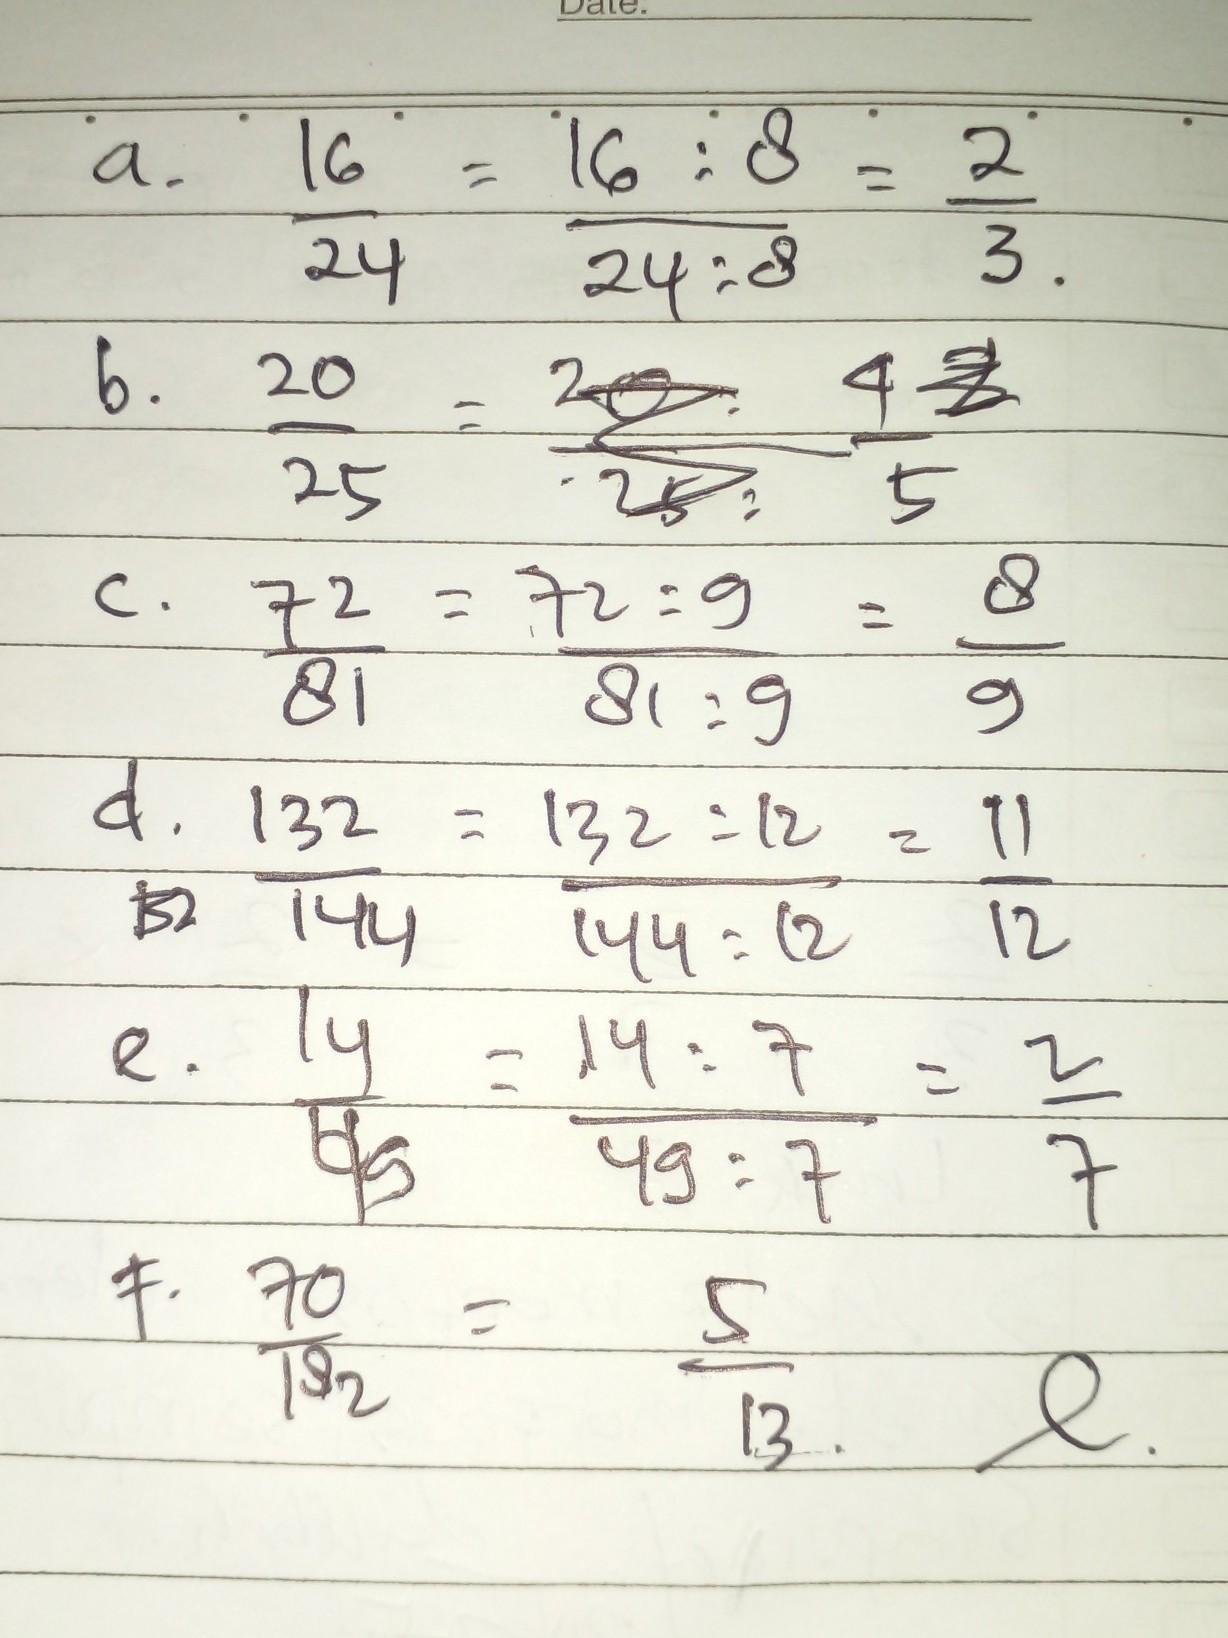 Date:
a. 16/24 = 16 : 8/24 : 8 = 2/3.
b. 20/25 = 4/5
c. 72/81 = 72 : 9/81 : 9 = 8/9
d. 132/144 = 132 : 12/144 : 12 = 11/12
e. 14/49 = 14 : 7/49 : 7 = 2/7
f. 70/182 = 5/13.